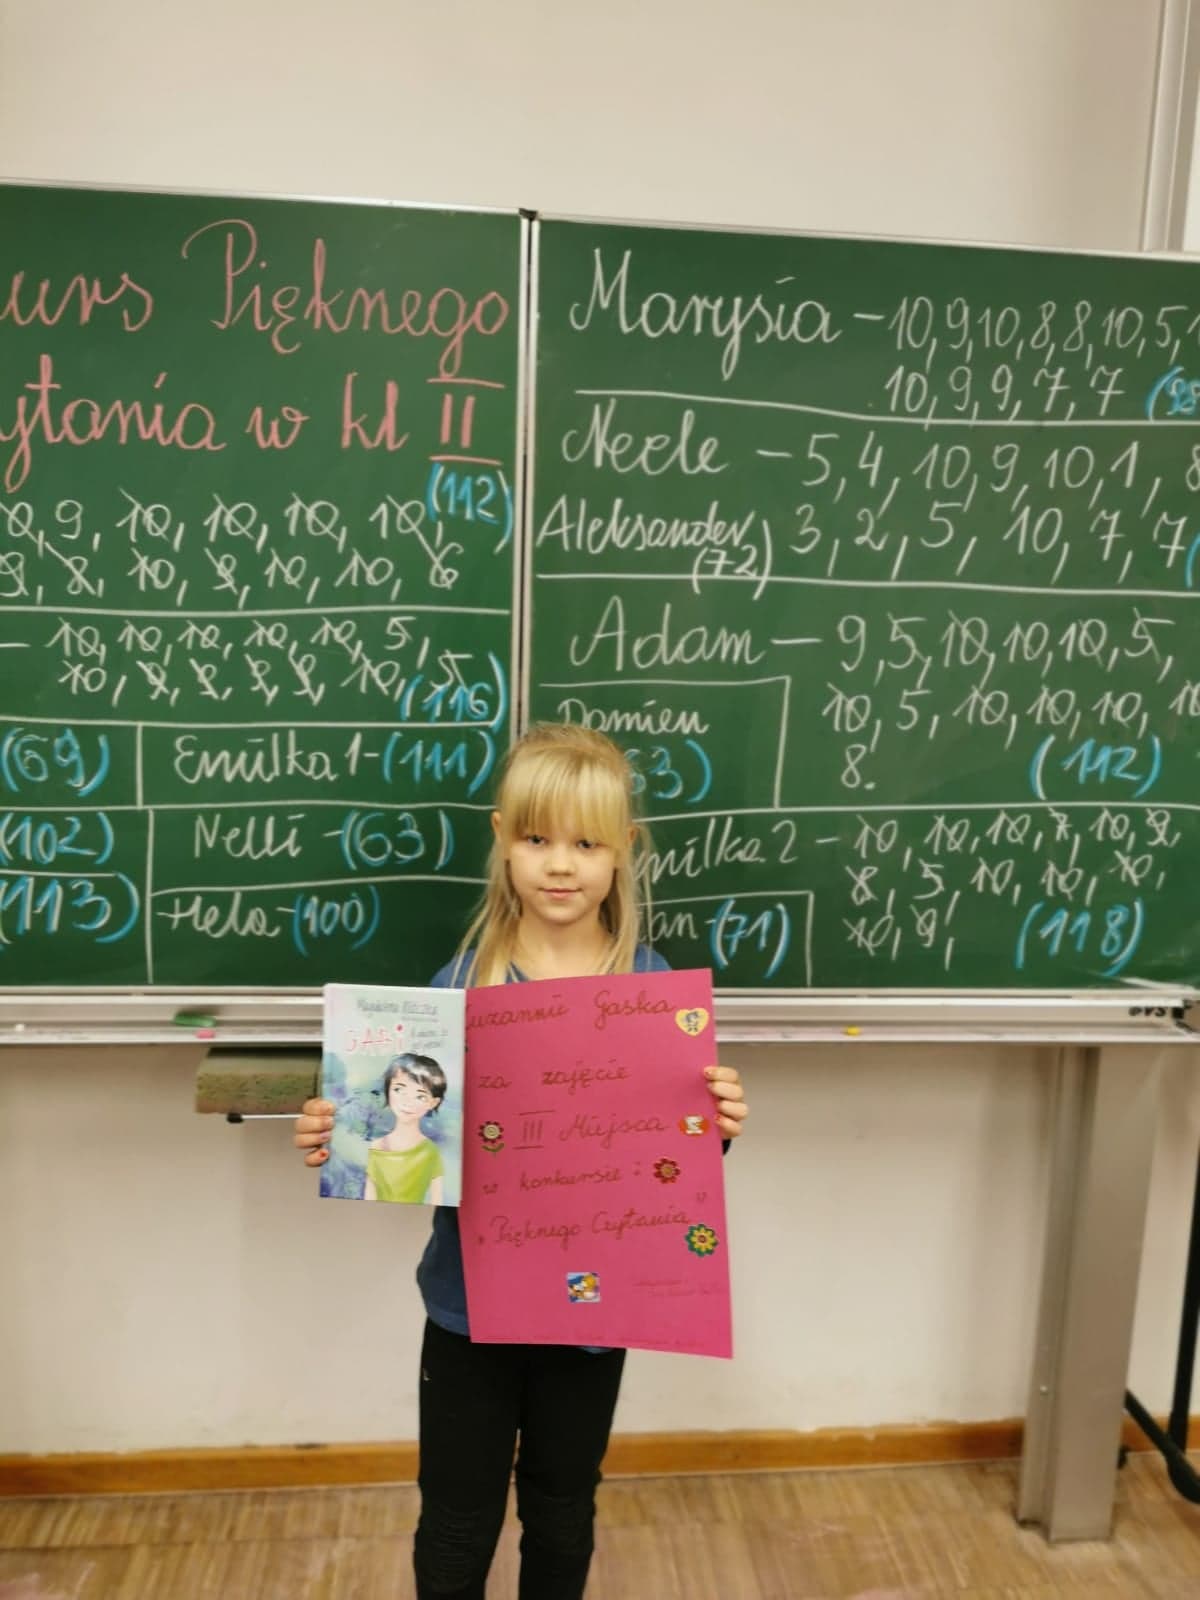 urs Pięknego
ytania w kl II
(112)
10, 9, 10, 10, 10, 10,
9, 8, 10, 9, 10, 10, 6
- 10, 10, 10, 10, 10, 5,
10, 9, 9, 9, 9, 10, 5
(116)
(69)
Emilka 1-(111)
(102)
Nelli -(63)
(113)
Hela-(100)
Marysia - 10, 9, 10, 8, 8, 10, 5,
10, 9, 9, 7, 7
Neele - 5, 4, 10, 9, 10, 1, 8
Aleksander 3, 2, 5, 10, 7, 7
(72)
Adam - 9, 5, 10, 10, 10, 5,
10, 5, 10, 10, 10, 10
8. (112)
Damien
63)
milka 2 - 10, 10, 10, 7, 10, 9,
8, 5, 10, 10, 10,
10, 9, (118)
an-(71)
GABI
uzannie Gaska
za zajęcie
III Miejsca
w konkursie :
"Pięknego Czytania"